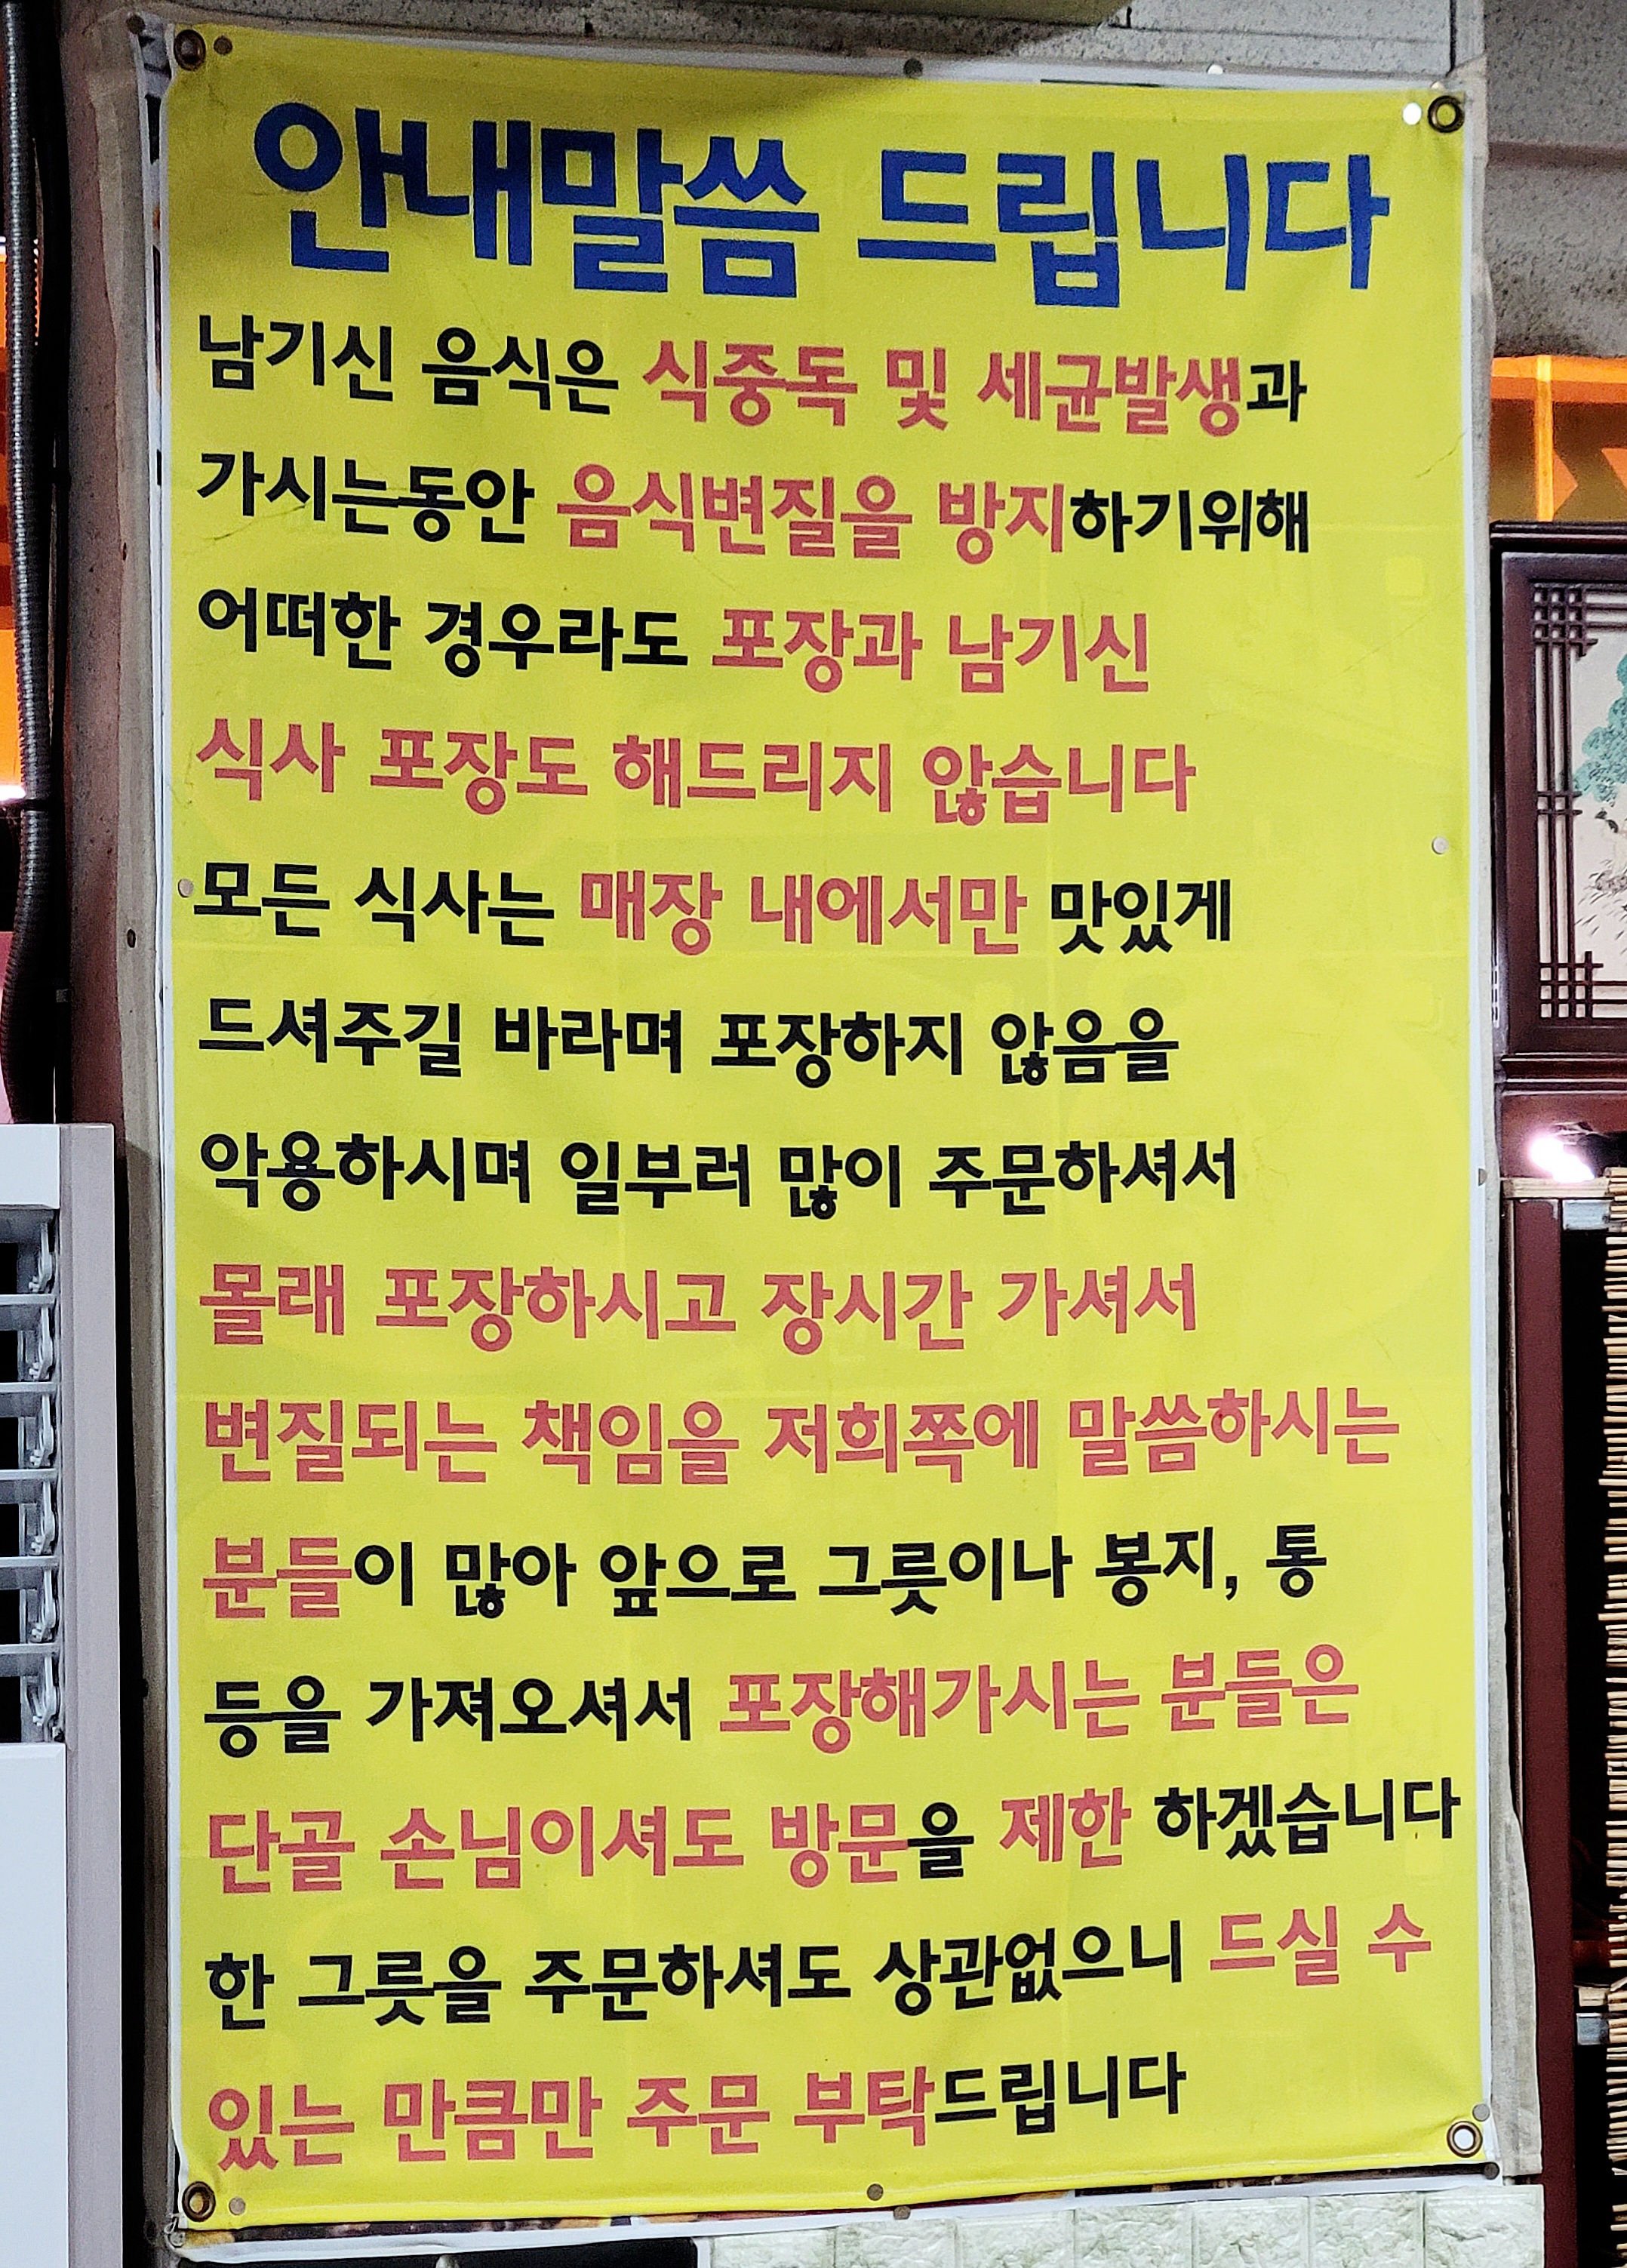 안내말씀 드립니다
남기신 음식은 식중독 및 세균발생과
가시는동안 음식변질을 방지하기위해
어떠한 경우라도 포장과 남기신
식사 포장도 해드리지 않습니다
모든 식사는 매장 내에서만 맛있게
드셔주길 바라며 포장하지 않음을
악용하시며 일부러 많이 주문하셔서
몰래 포장하시고 장시간 가셔서
변질되는 책임을 저희쪽에 말씀하시는
분들이 많아 앞으로 그릇이나 봉지, 통
등을 가져오셔서 포장해가시는 분들은
단골 손님이셔도 방문을 제한 하겠습니다
한 그릇을 주문하셔도 상관없으니 드실 수
있는 만큼만 주문 부탁드립니다